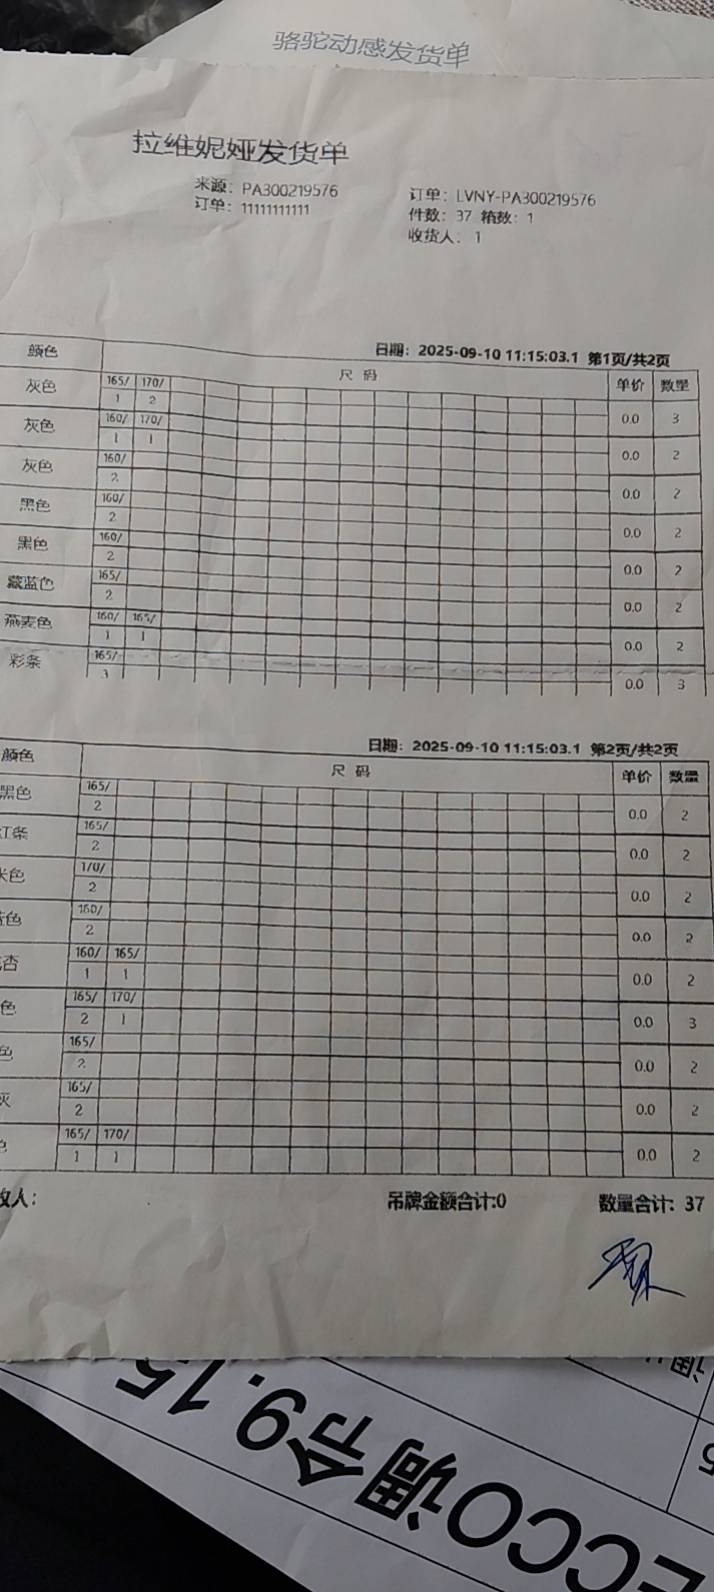 骆驼动感发货单
拉维妮娅发货单
来源：PA300219576
订单：11111111111
订单：LVNY-PA300219576
件数：37 箱数：1
收货人：1
日期：2025-09-10 11:15:03.1 第1页/共2页
颜色 尺码 单价 数量
灰色 165/ 170/
1 2 0.0 3
灰色 160/ 170/
1 1 0.0 2
灰色 160/
2 0.0 2
黑色 160/
2 0.0 2
黑色 160/
2 0.0 2
藏蓝色 165/
2 0.0 2
燕麦色 160/ 165/
1 1 0.0 2
彩条 165/
0.0 3
日期：2025-09-10 11:15:03.1 第2页/共2页
颜色 尺码 单价 数量
黑色 165/
2 0.0 2
红条 165/
2 0.0 2
米色 170/
2 0.0 2
色 160/
2 0.0 2
杏 160/ 165/
1 1 0.0 2
色 165/ 170/
2 1 0.0 3
色 165/
2 0.0 2
灰 165/
2 0.0 2
165/ 170/
1 1 0.0 2
收人：
吊牌金额合计:0
数量合计：37
ECCO调令9.15